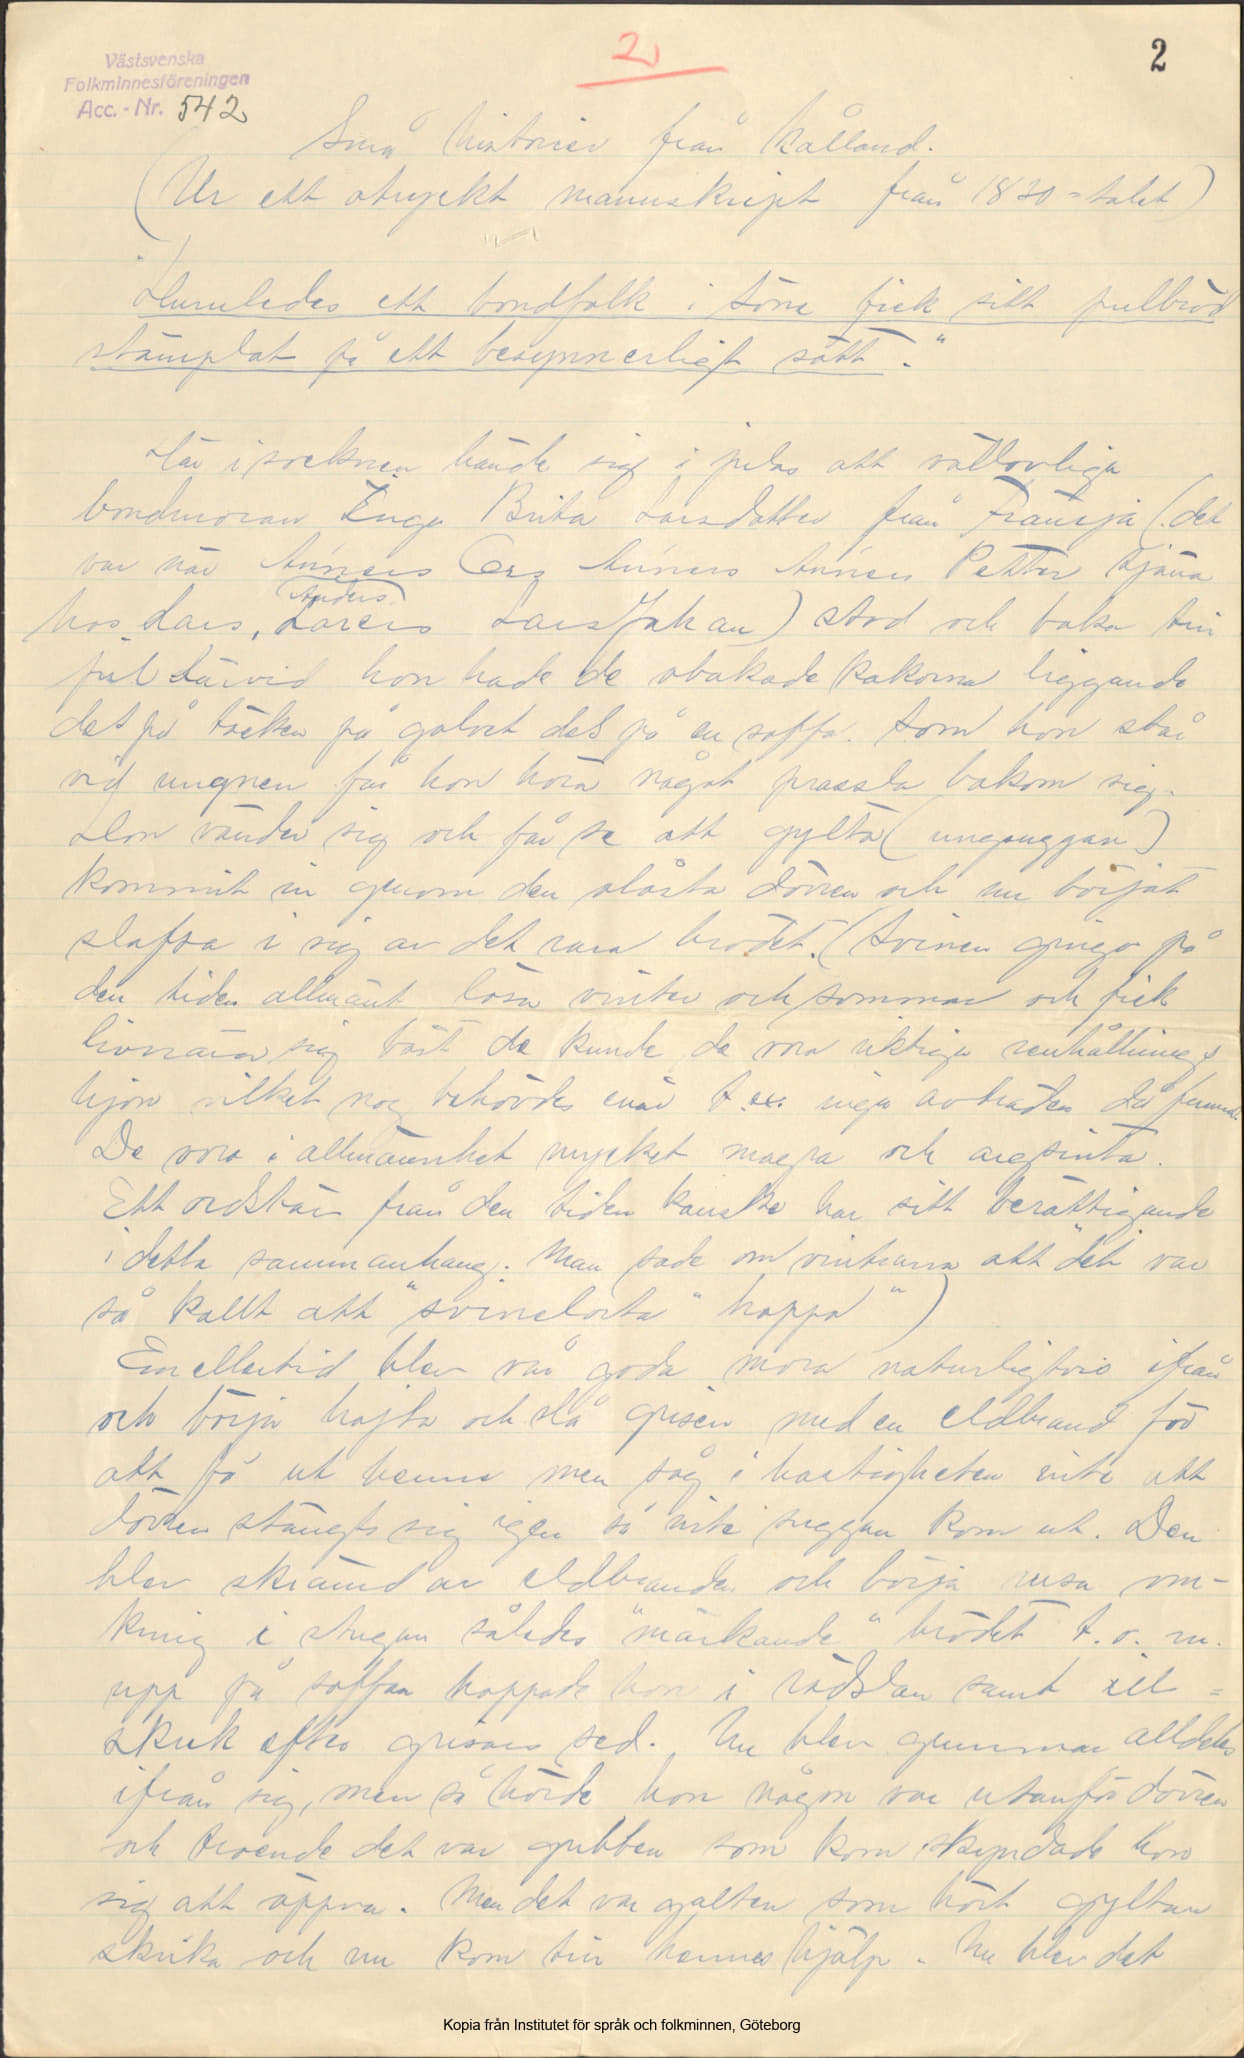 Västsvenska
Folkminnesföreningen
Acc. - Nr. 542
2
2
Små historier från Kålland.
(Ur ett otryckt manuskript från 1830-talet)
"Huruledes ett bondfolk i Söne fick sitt julbröd
stämplat på ett besynnerligt sätt."
Här i socknen hände sig i julas att vällovliga
bondmoran Inga Brita Larsdotter från Fransja (det
var när Anners Anners Anners Petter tjäna
Anders
hos Lars, Larsis Lars Johan) stod och baka till
jul därvid hon hade de obakade kakorna liggande
dels på täcken på golvet dels på en soffa. Som hon står
vid ungnen får hon höra något prassla bakom sig.
Hon vänder sig och får se att gylta (ungsuggan)
kommit in genom den olåsta dörren och nu börjat
slafsa i sig av det rara brödet. (Svinen gingo på
den tiden allmänt lösa vinter och sommar och fick
livnära sig bäst de kunde, de voro riktiga renhållnings
hjon vilket nog behövdes enär t.ex. inga avträden då funnos.
De voro i allmänhet mycket magra och argsinta.
Ett ordstäv från den tiden kanske har sitt berättigande
i detta sammanhang. Man sade om vintrarna att "det var
så kallt att "svinalorta" hoppa")
Emellertid blev vår goda mora naturligtvis ifrån
och börja hojta och slå grisen med en eldbrand för
att få ut henne men såg i hastigheten inte att
dörren stängts sig igen så inte suggan kom ut. Den
blev skrämd av eldbranden och börja rusa om-
kring i stugan således "märkande" brödet t.o.m.
upp på soffan hoppade hon i rädslan samt
skrek efter grisars sed. Nu blev gumman alldeles
ifrån sig, men så hörde hon någon var utanför dörren
och troende det var gubben som kom skyndade hon
sig att öppna. Men det var galten som hört gyltan
skrika och nu kom till hennes hjälp. Nu blev det
Kopia från Institutet för språk och folkminnen, Göteborg